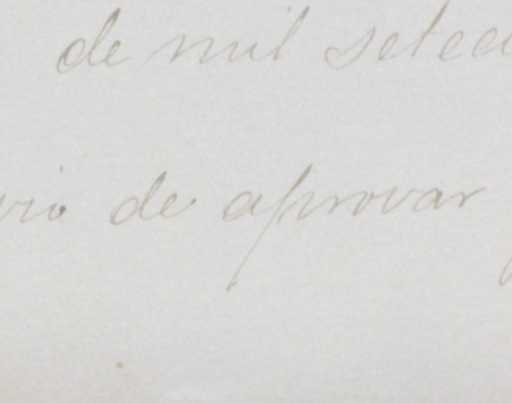 de mil setec
rio de aprovar